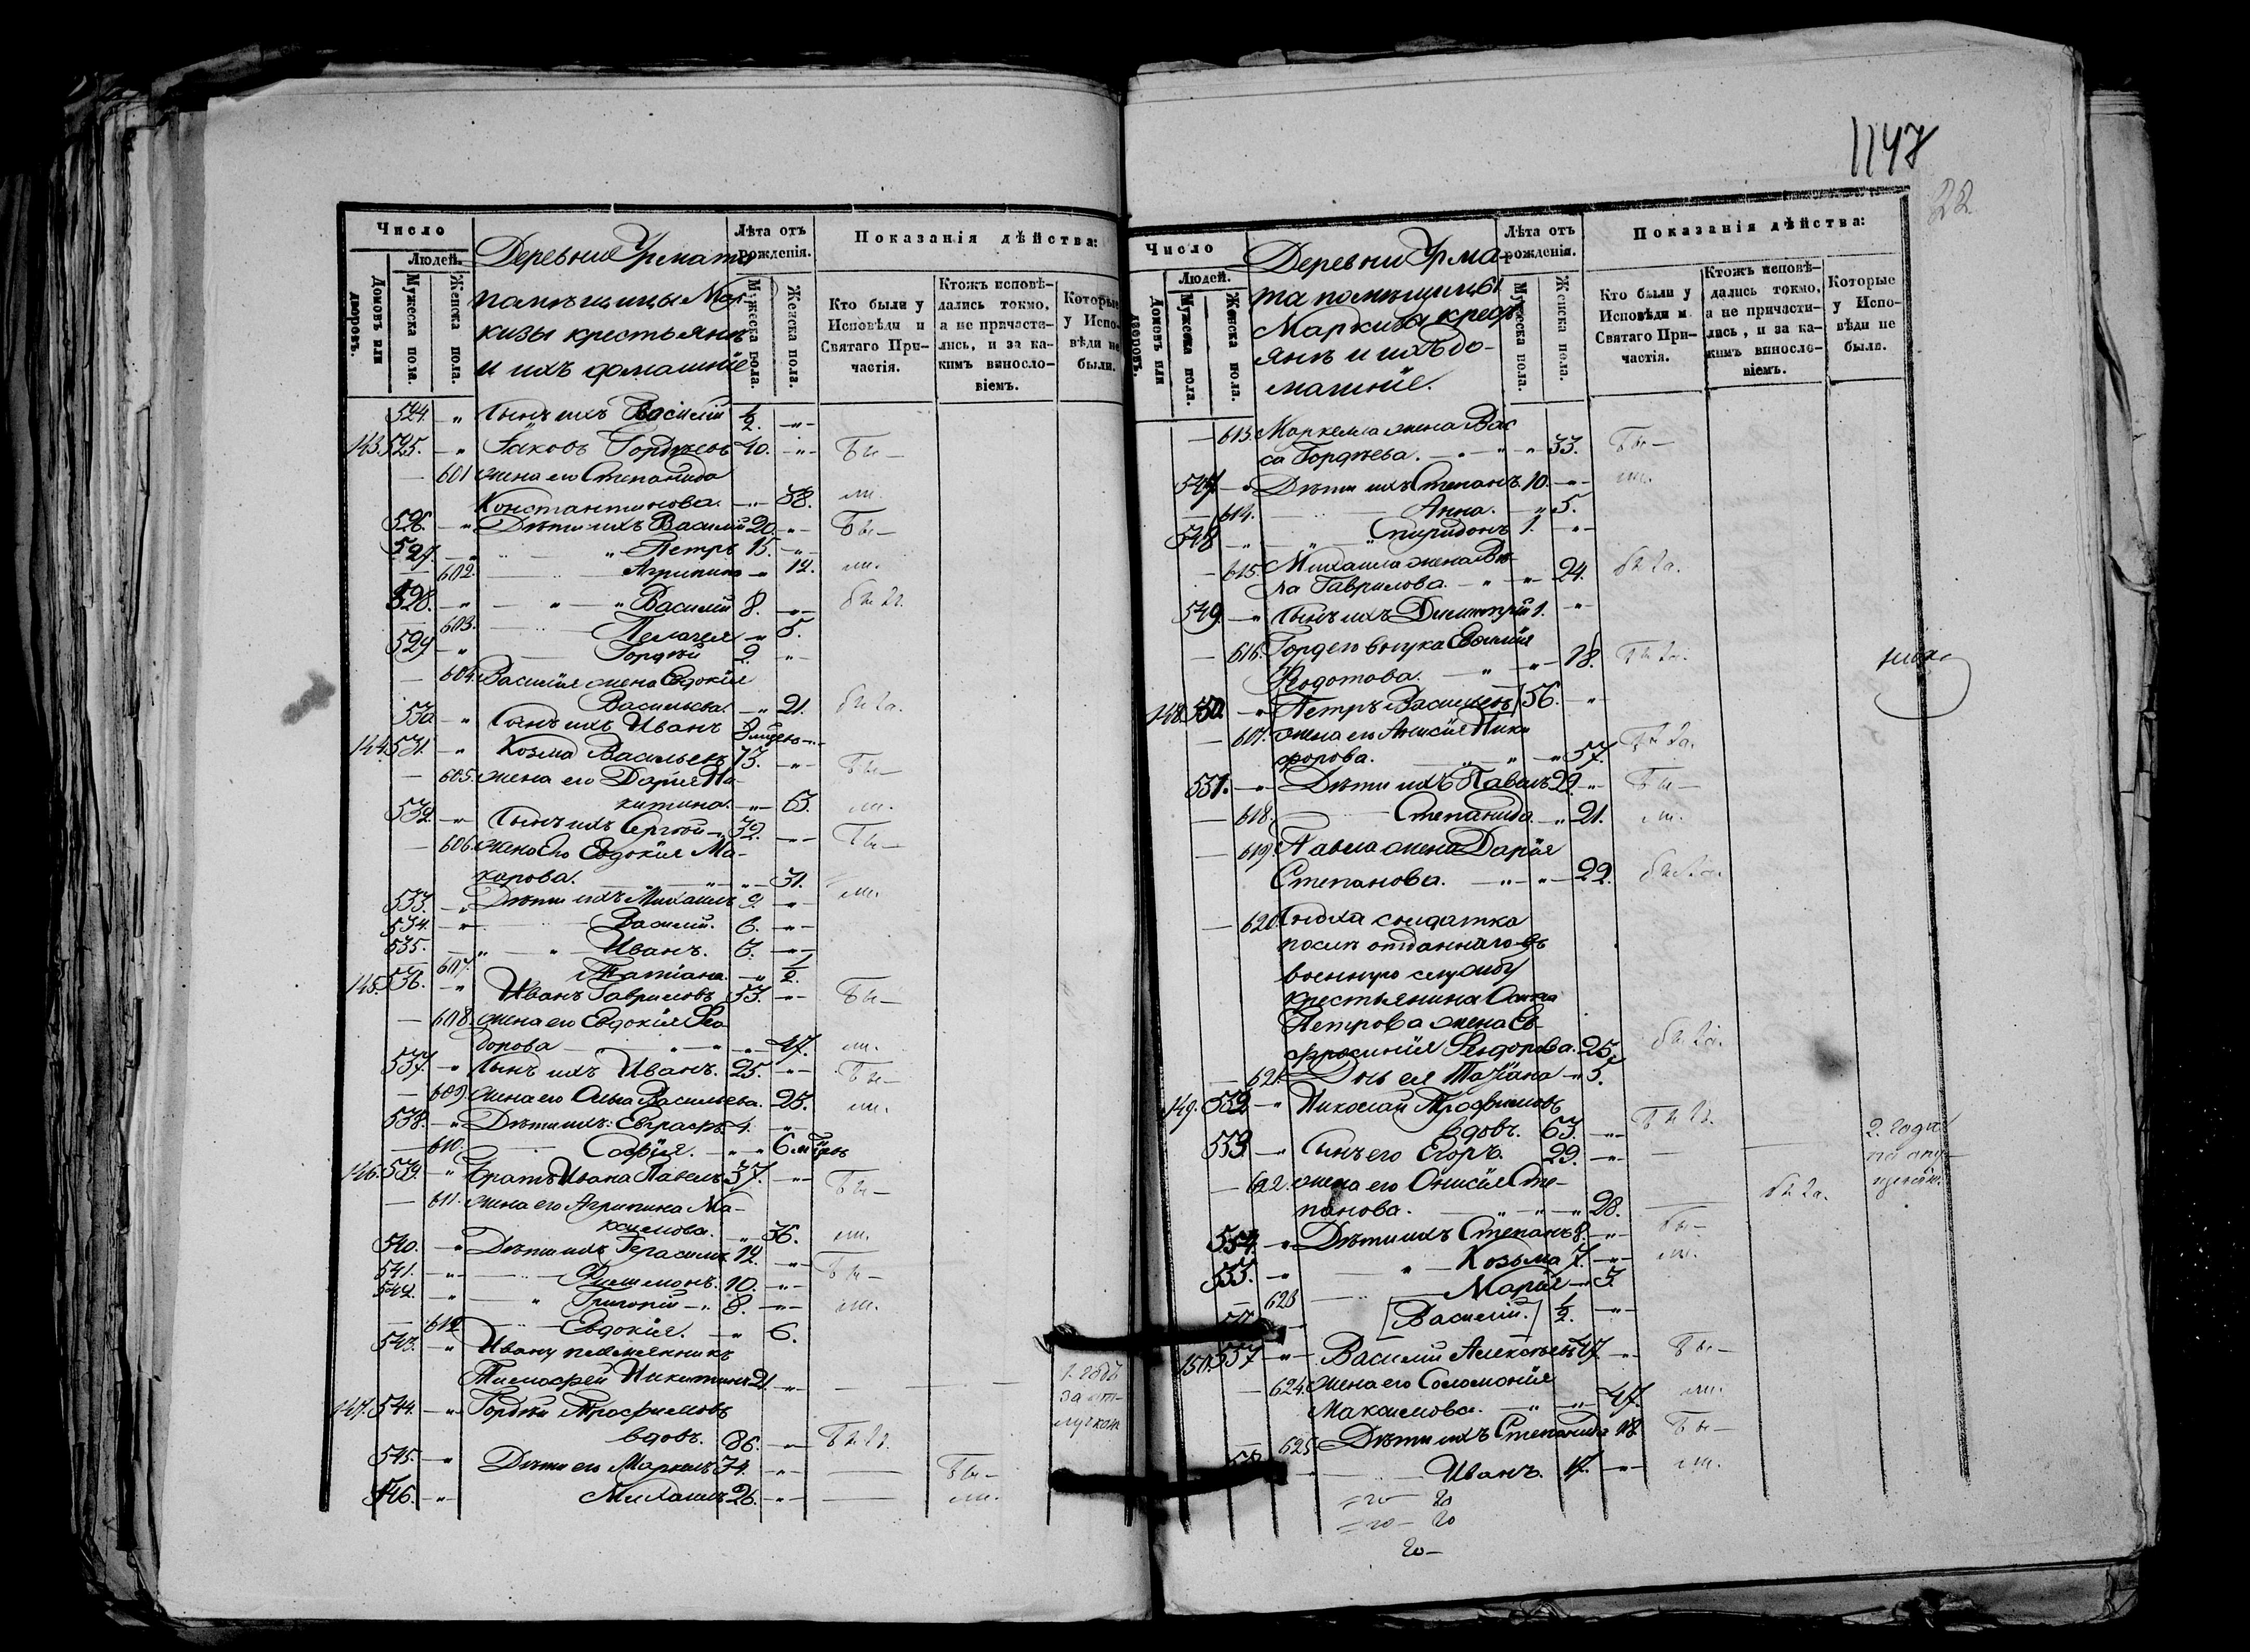 1147
22
Число
Людей.
Домовъ или дворовъ.
Мужеска пола.
Женска пола.
Деревни Урмата
помѣщицы Мар-
кизы крестьянъ
и ихъ домашніе
Лѣта отъ рожденія.
Мужеска пола.
Женска пола.
Показанія дѣйства:
Кто были у Исповѣди и Святаго При-частія.
Ктожъ исповѣ-дались токмо, а не причасти-лись, и за ка-кимъ винослο-віемъ.
Которые у Испо-вѣди не были.
524. Сынъ ихъ Василій 1/2.
143. 525. Іаковъ Гордѣевъ 40. Бы-
601 жена его Степанида
Константинова. 38. ли.
526. Дѣти ихъ Василій 20. Бы-
527. Петръ 15.
602. Агрипина 12. ли.
528. Василій 8.
603. Пелагея 5.
529 Гордѣй 2
604. Василія жена Евдокія
Васильева. 21.
530 Сынъ ихъ Иванъ
144. 531. Козма Васильевъ 73. Бы-
605. жена его Дарія Ни-
китина. 63. ли.
532. Сынъ ихъ Сергѣй 32.
606. жена его Евдокія Ма- Бы-
карова. 31. ли.
533. Дѣти ихъ Михаилъ 9.
534. Василій. 6.
535. Иванъ. 3.
607. Татіана. 1/2.
145. 536. Иванъ Гавриловъ 53. Бы-
608. жена его Евдокія Ѳео-
дорова 47. ли.
537. Сынъ ихъ Иванъ. 25. Бы-
609. жена его Анна Васильева. 25. ли.
538. Дѣти ихъ: Евграфъ 4.
610. Софія. 6
146. 539. Братъ Ивана Павелъ 37. Бы-
611. жена его Агрипина Ма-
ксимова. 36. ли.
540. Дѣти ихъ Герасимъ 12. Бы-
541. Филимонъ. 10.
542. Григорій 8. ли.
612 Евдокія. 6.
543. Ивану племянникъ
Тимофей Никитинъ 21. 1. годъ за от-лучкою
147. 544. Гордѣй Трофимовъ
вдовъ. 86.
545. Дѣти его Маркелъ 34. Бы-
546. Михаилъ 26. ли.
Число
Людей.
Домовъ или дворовъ.
Мужеска пола.
Женска пола.
Деревни Урма-
та помѣщицы
Маркизы крест
янъ и ихъ до-
машніе.
Лѣта отъ рожденія.
Мужеска пола.
Женска пола.
Показанія дѣйства:
Кто были у Исповѣди и Святаго При-частія.
Ктожъ исповѣ-дались токмо, а не причасти-лись, и за ка-кимъ винослο-віемъ.
Которые у Испо-вѣди не были.
613. Маркела жена Вас
са Гордѣева. 33. Бы-
547. Дѣти ихъ Степанъ. 10. ли.
614. Анна. 5.
548 Спиридонъ 1.
615. Михаила жена Вѣ-
ра Гаврилова. 24.
549. Сынъ ихъ Димитрій 1.
616. Гордея внука Евгенія
Ѳеодотова. 18.
148. 550. Петръ Васильевъ 56.
617. жена его Анисія Ники
форова. 57.
551. Дѣти ихъ Павелъ 22. Бы-
618. Степанида. 21. ли.
619. Павла жена Дарія
Степанова. 22.
620. Сноха солдатка
послѣ отданнаго въ
военную службу
крестьянина
Петрова жена Ев-
фросинія Ѳеодорова. 25.
621. Дочь ея Татіана 5.
149. 552. Николай Трофимовъ
вдовъ. 63.
553. Сынъ его Егоръ. 29. 2. года
622. жена его Онисія Сте-
панова. 28.
554. Дѣти ихъ Степанъ 8. Бы-
555. Козьма 7. ли.
623 Марія 3
[Василій.] 1/2.
150. 557 Василій Алексѣевъ 47 Бы-
624. жена его Соломонія
Максимова. 47. ли.
625. Дѣти ихъ Степанида 18 Бы-
Иванъ. 17. ли.